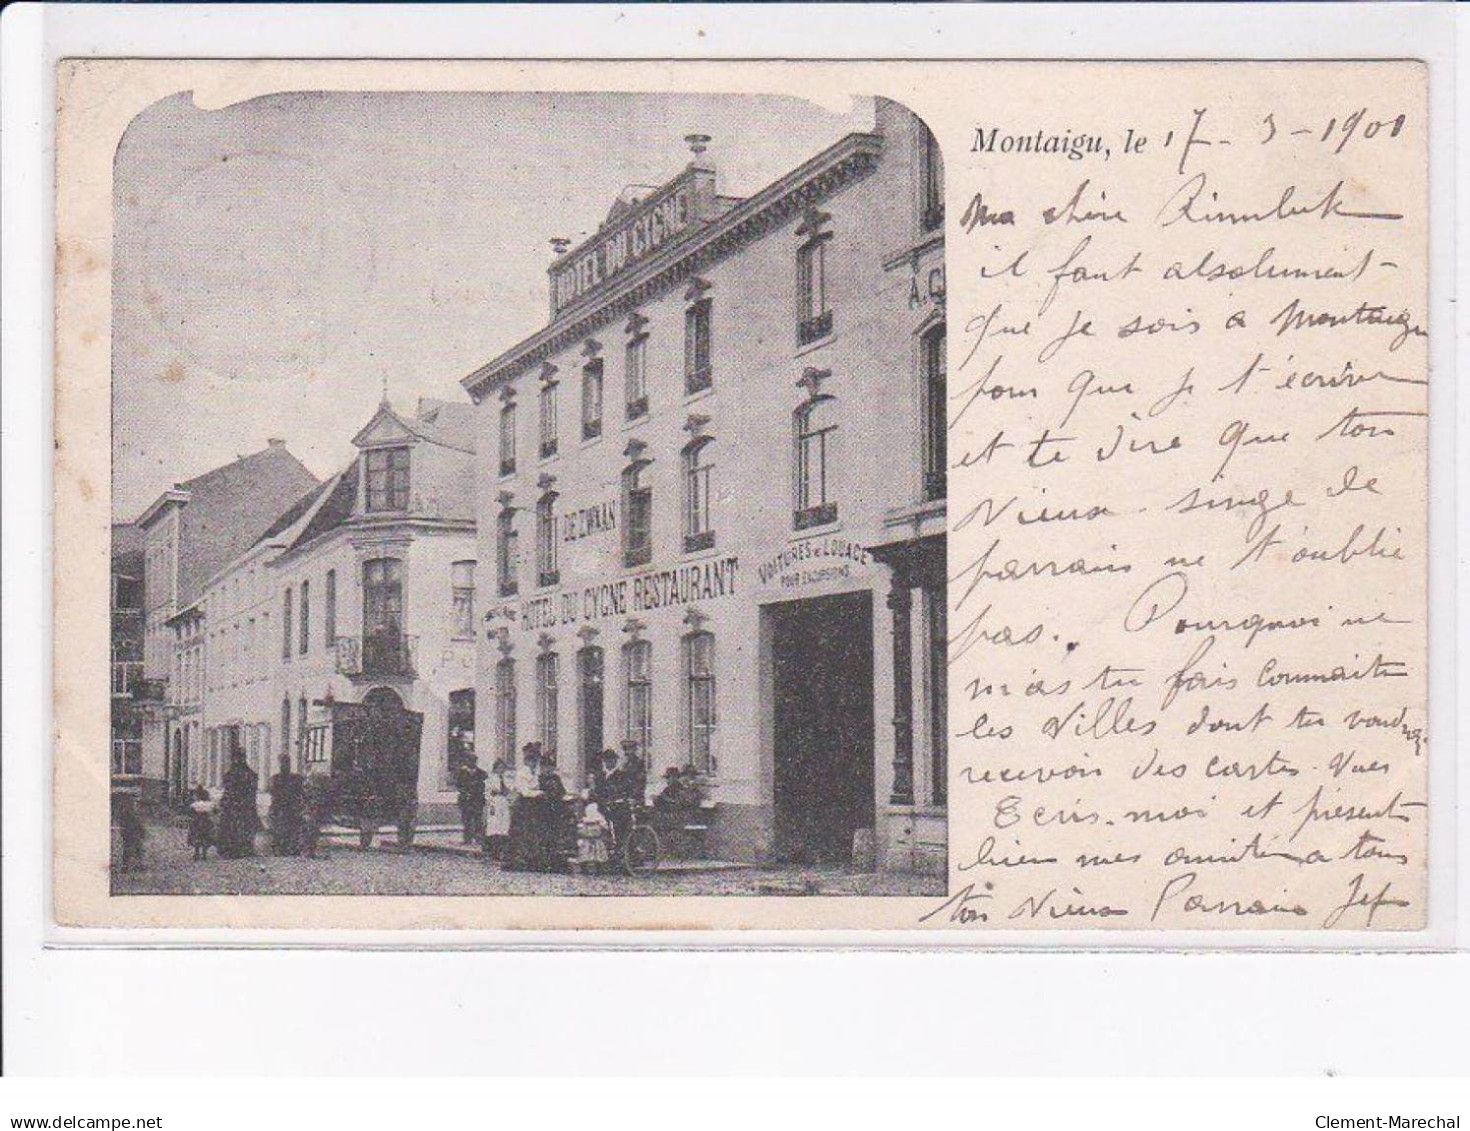 HOTEL DU CYGNE
DE ZWAAN
HOTEL DU CYGNE RESTAURANT
VOITURES DE LOUAGE
POUR EXCURSIONS
Montaigu, le 17-3-1901
Ma chère
il faut absolument
que je sois a Montaigu
pour que je t'écrive
et te dire que ton
vieux singe de
parrain ne t'oublie
pas. Pourquoi ne
m'as tu fais connaitre
les villes dont tu voudrez
recevoir des cartes vues
Ecris-moi et présente
bien mes amitiés a tous
ton vieux Parrain Jef
delcampe.net
Clement-Marechal